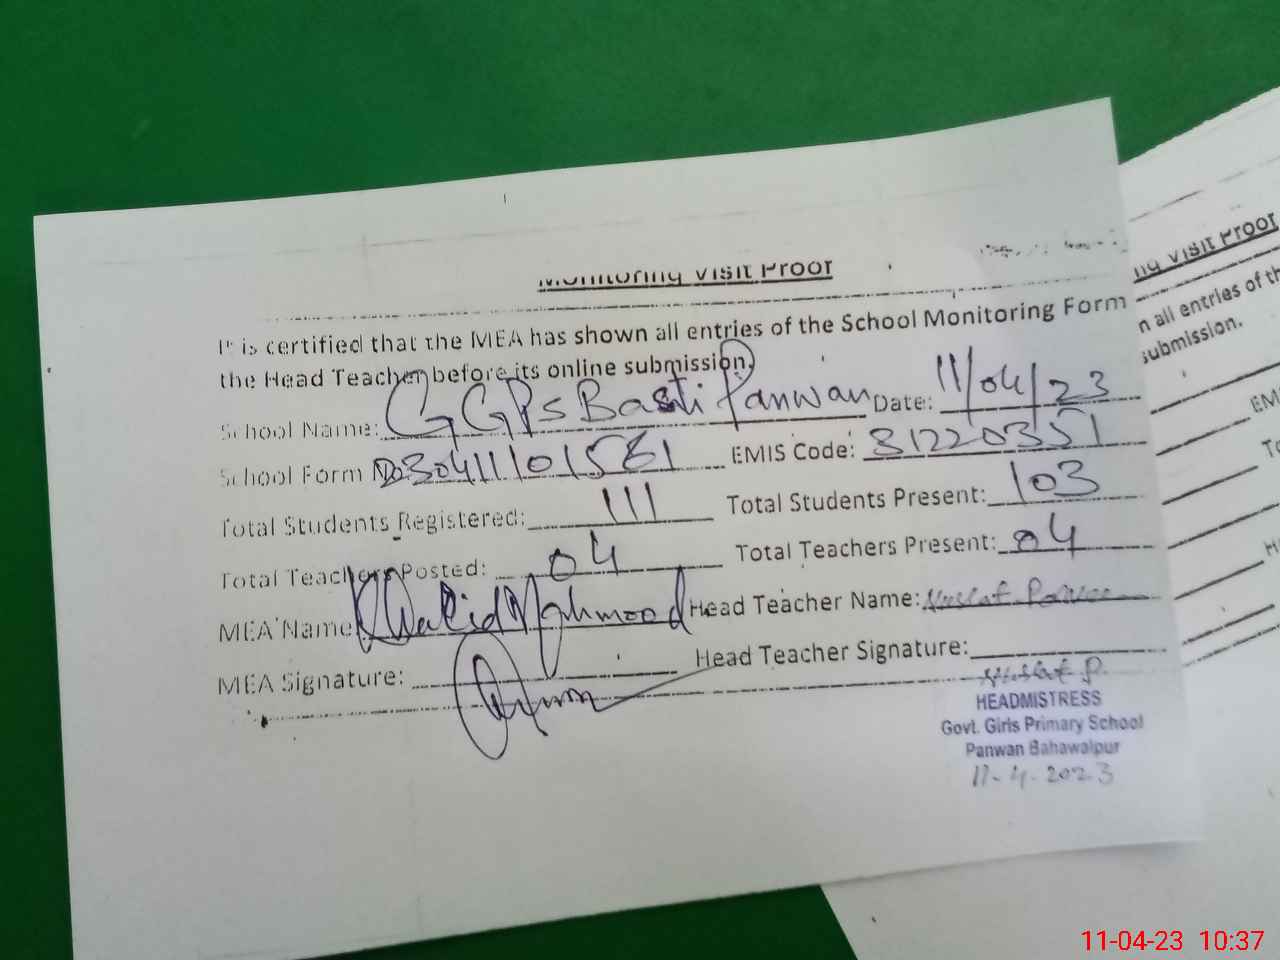 Monitoring Visit Proof
It is certified that the MEA has shown all entries of the School Monitoring Form
the Head Teacher before its online submission.
School Name: GGPS Basti Panwan Date: 11/04/23
School Form No 30411101561 EMIS Code: 31220351
Total Students Registered: 111 Total Students Present: 103
Total Teachers Posted: 04 Total Teachers Present: 04
MEA Name: Khalid Mahmood Head Teacher Name:
MEA Signature: Head Teacher Signature:
HEADMISTRESS
Govt. Girls Primary School
Panwan Bahawalpur
11-4-2023
ng Visit Proof
n all entries of th
submission.
EMI
To
11-04-23 10:37